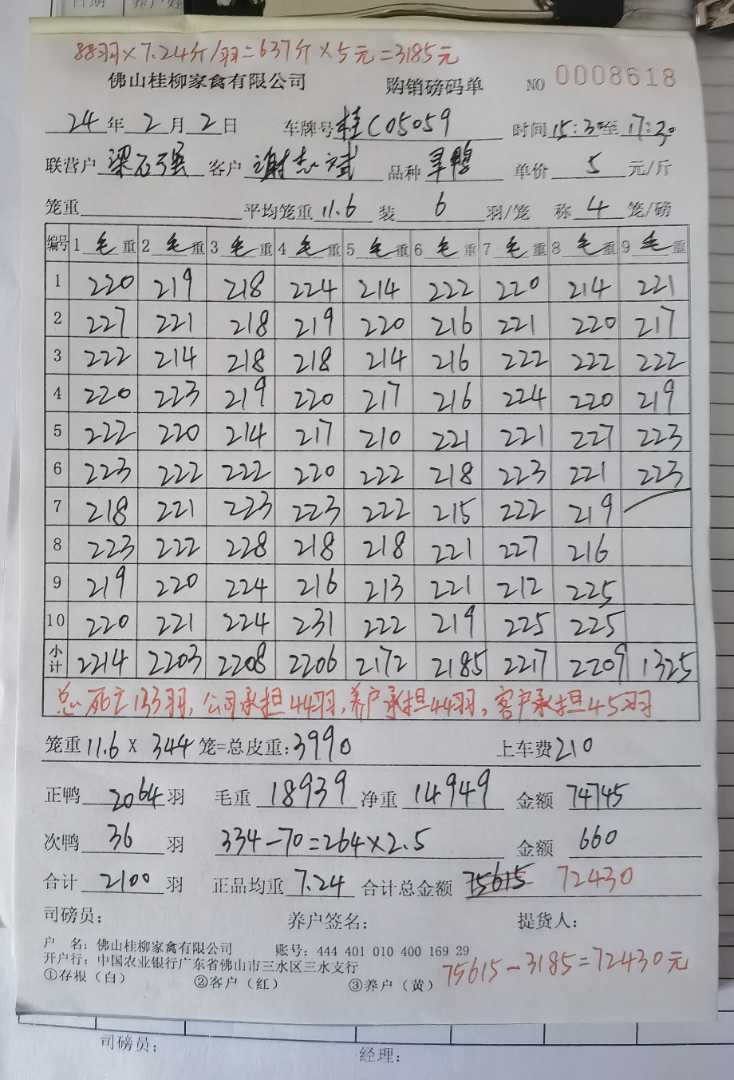 88羽×7.24斤/羽=637斤×5元=3185元
佛山桂柳家禽有限公司 购销磅码单 NO 0008618
24年2月2日 车牌号 桂C05059 时间 15:30至17:30
联营户 梁石强 客户 谢志斌 品种 旱鸭 单价 5 元/斤
笼重 平均笼重 11.6 装 6 羽/笼 称 4 笼/磅
编号 1 毛 重 2 毛 重 3 毛 重 4 毛 重 5 毛 重 6 毛 重 7 毛 重 8 毛 重 9 毛 重
1 220 219 218 224 214 222 220 214 221
2 227 221 218 219 220 216 221 220 217
3 222 214 218 218 214 216 222 222 222
4 220 223 219 220 217 216 224 220 219
5 222 220 214 217 210 221 221 227 223
6 223 222 222 220 222 218 223 221 223
7 218 221 223 223 222 215 222 219
8 223 222 228 218 218 221 227 216
9 219 220 224 216 213 221 212 225
10 220 221 224 231 222 219 225 225
小计 2214 2203 2208 2206 2172 2185 2217 2209 1325
总死亡133羽,公司承担44羽,养户承担44羽,客户承担45羽
笼重 11.6 X 344 笼=总皮重:3990 上车费 210
正鸭 2064 羽 毛重 18939 净重 14949 金额 74745
次鸭 36 羽 334-70=264×2.5 金额 660
合计 2100 羽 正品均重 7.24 合计总金额 75615 72430
司磅员: 养户签名: 提货人:
户 名: 佛山桂柳家禽有限公司 账号: 444 401 010 400 169 29
开户行: 中国农业银行广东省佛山市三水区三水支行
75615-3185=72430元
①存根(白) ②客户(红) ③养户(黄)
司磅员: 经理: